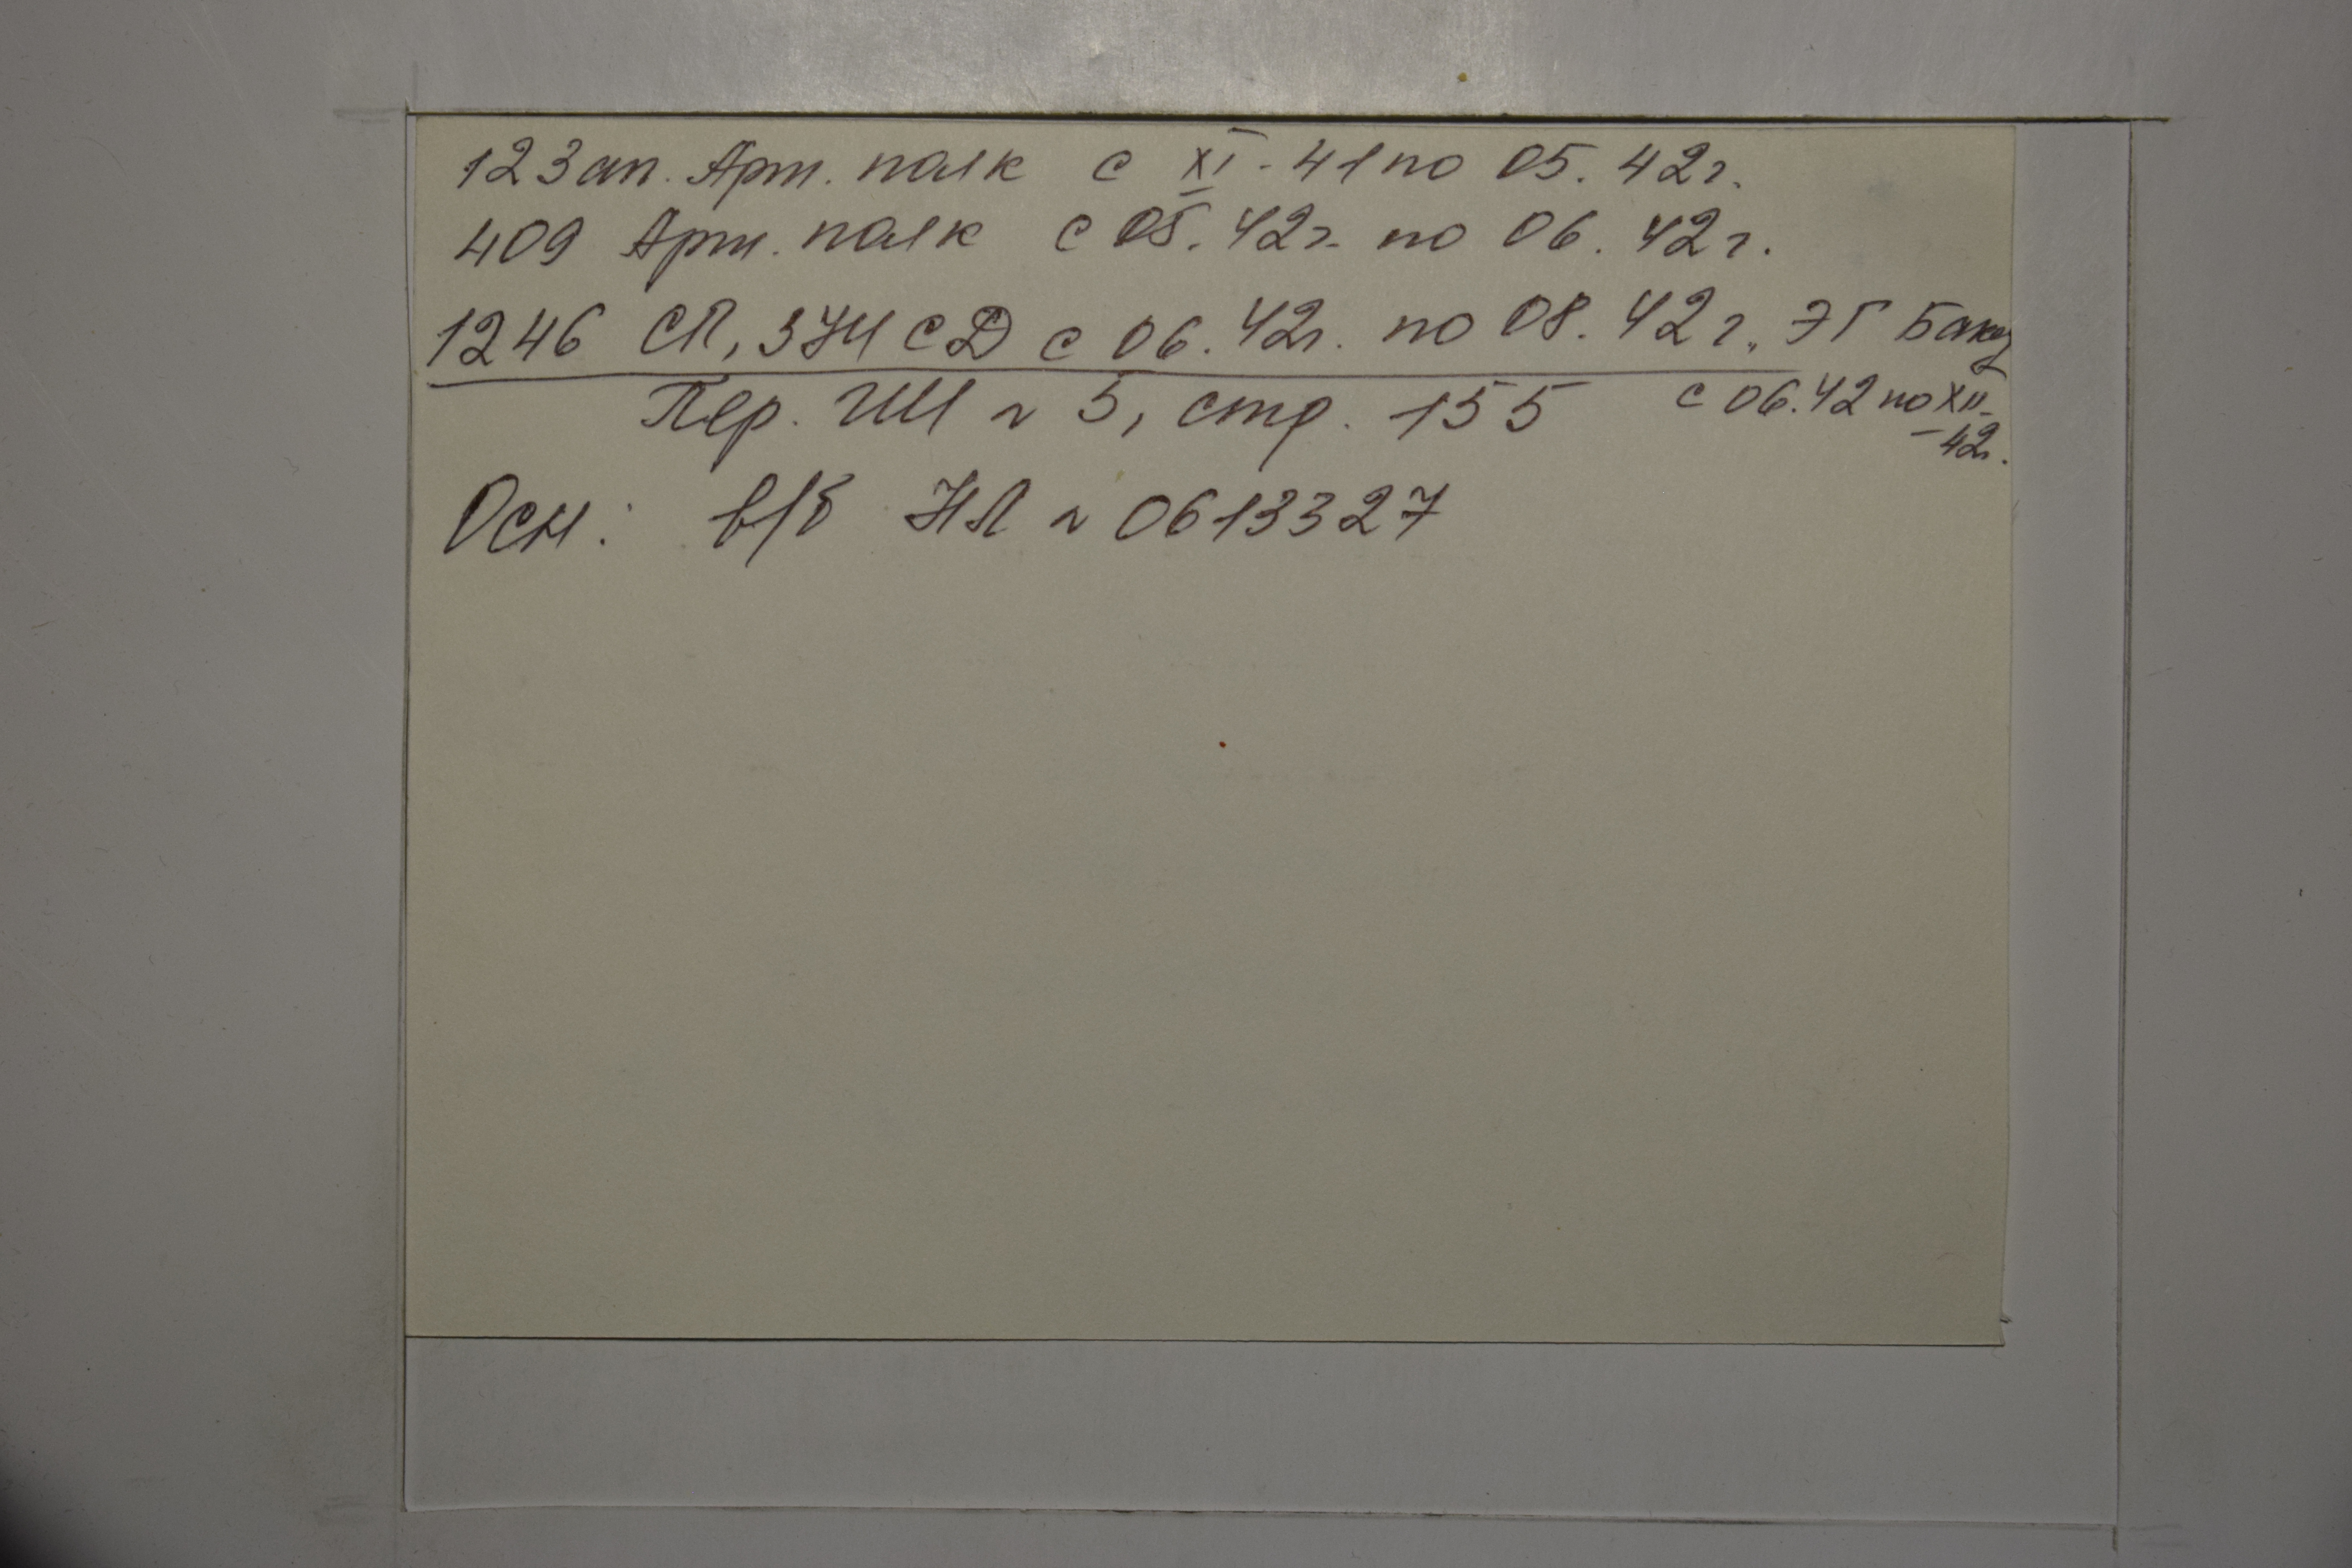 123 ап. Арт. полк с XI-41 по 05.42г.
409 Арт. полк с 05.42г. по 06.42г.
1246 СП, 374 СД с 06.42г. по 08.42г., ЭГ Баку
с 06.42 по XII-
-42г.
Пер. ГШ № 5, стр. 155
Осн: в/б НЛ № 0613327